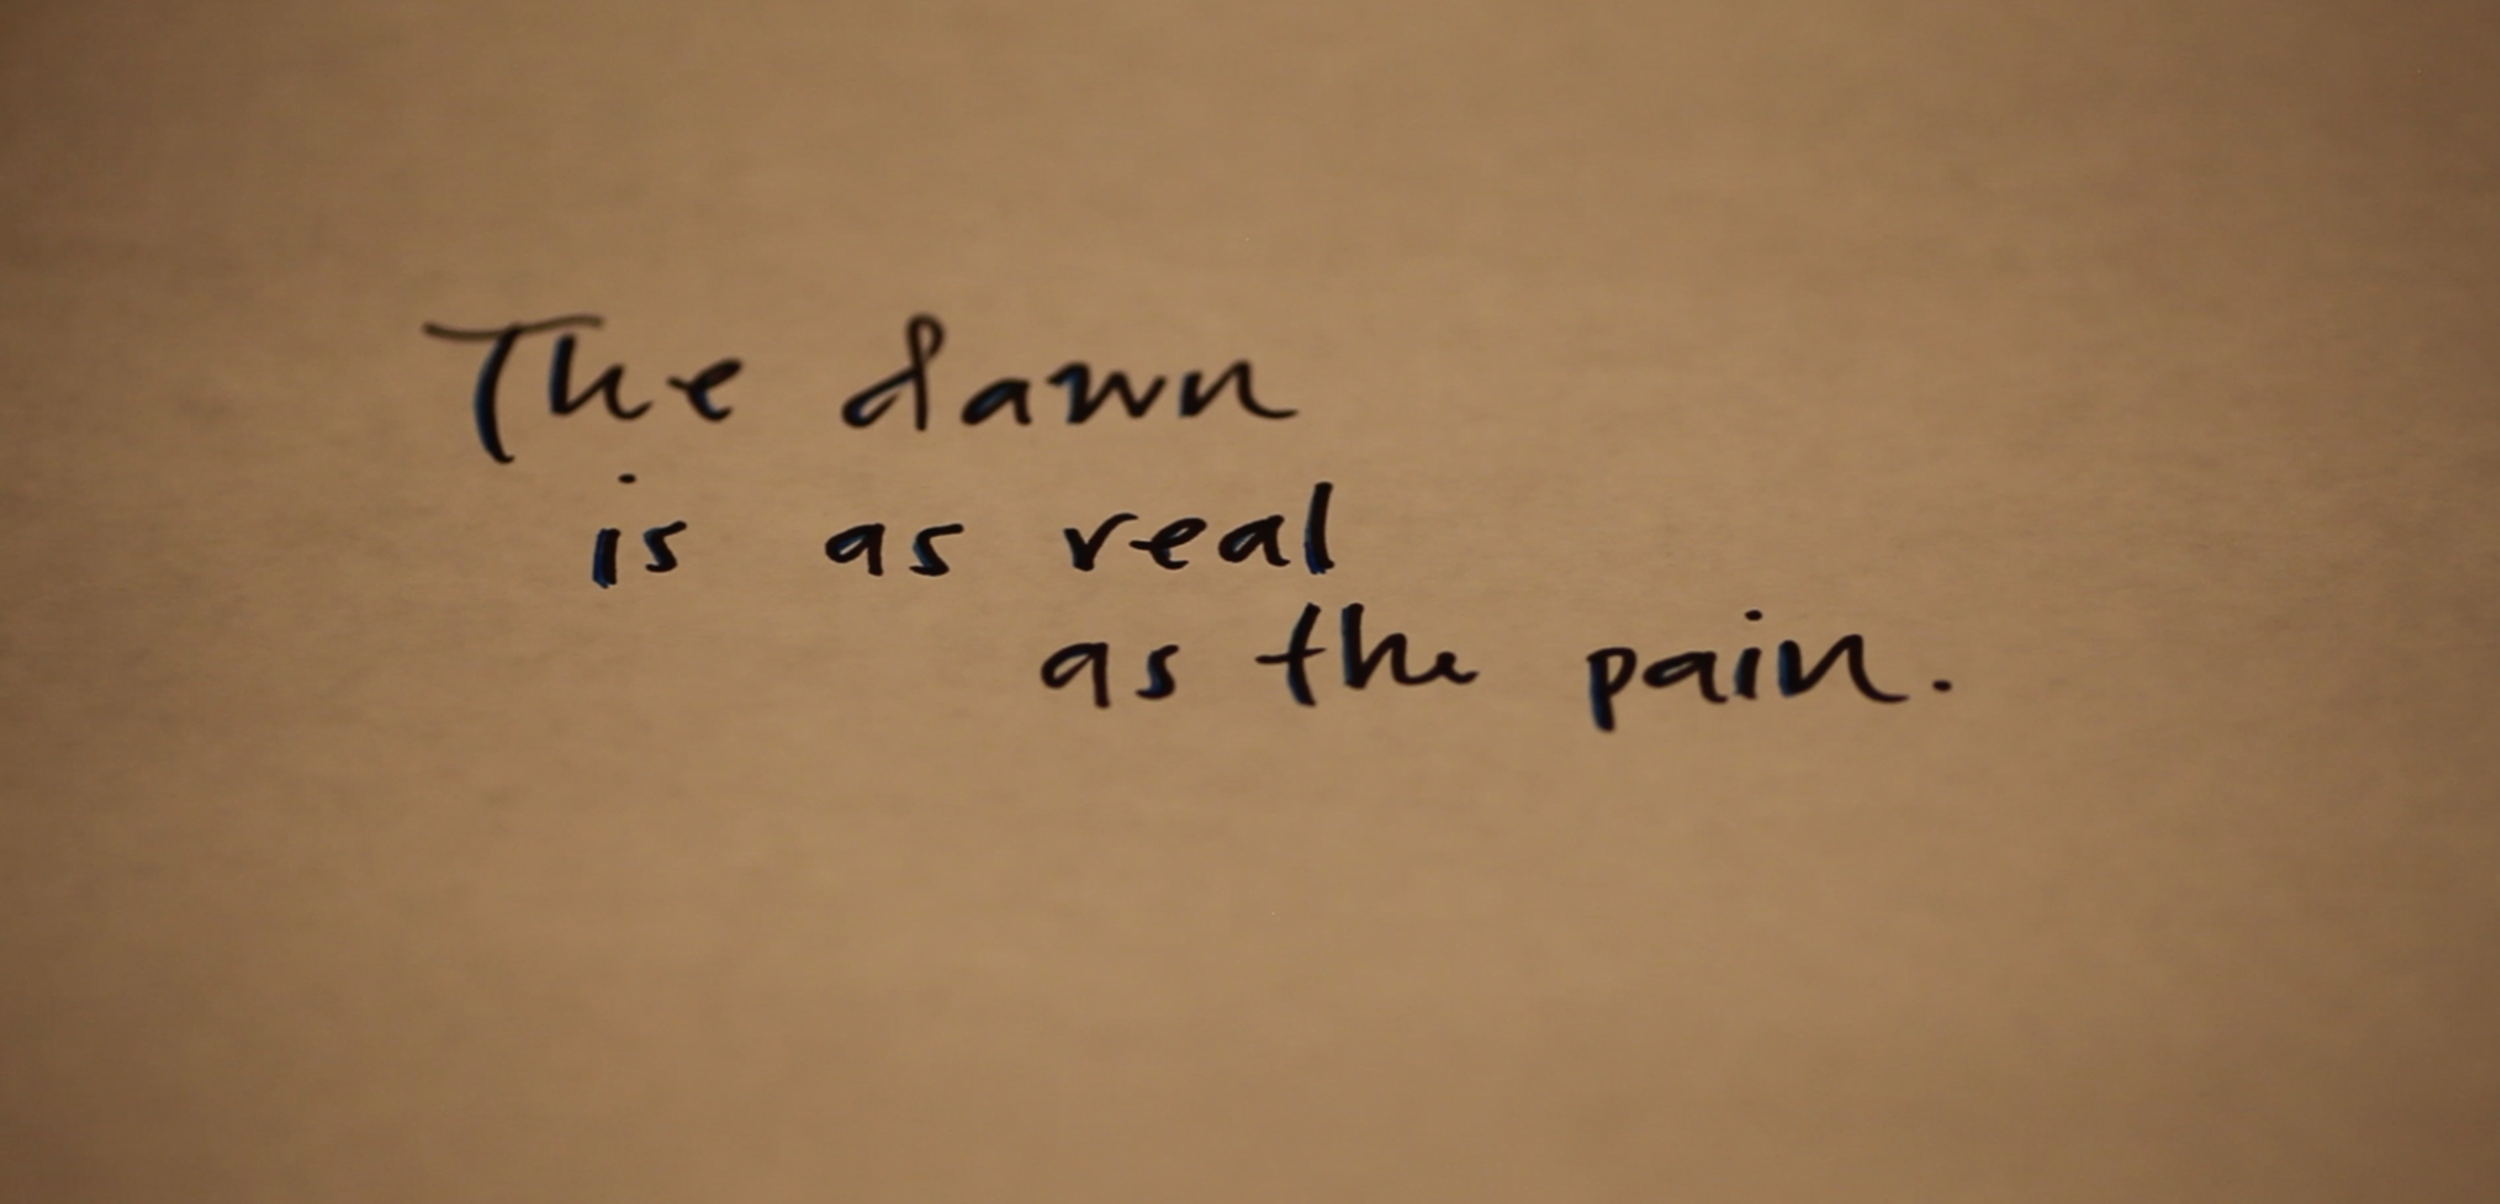 The dawn
is as real
as the pain.